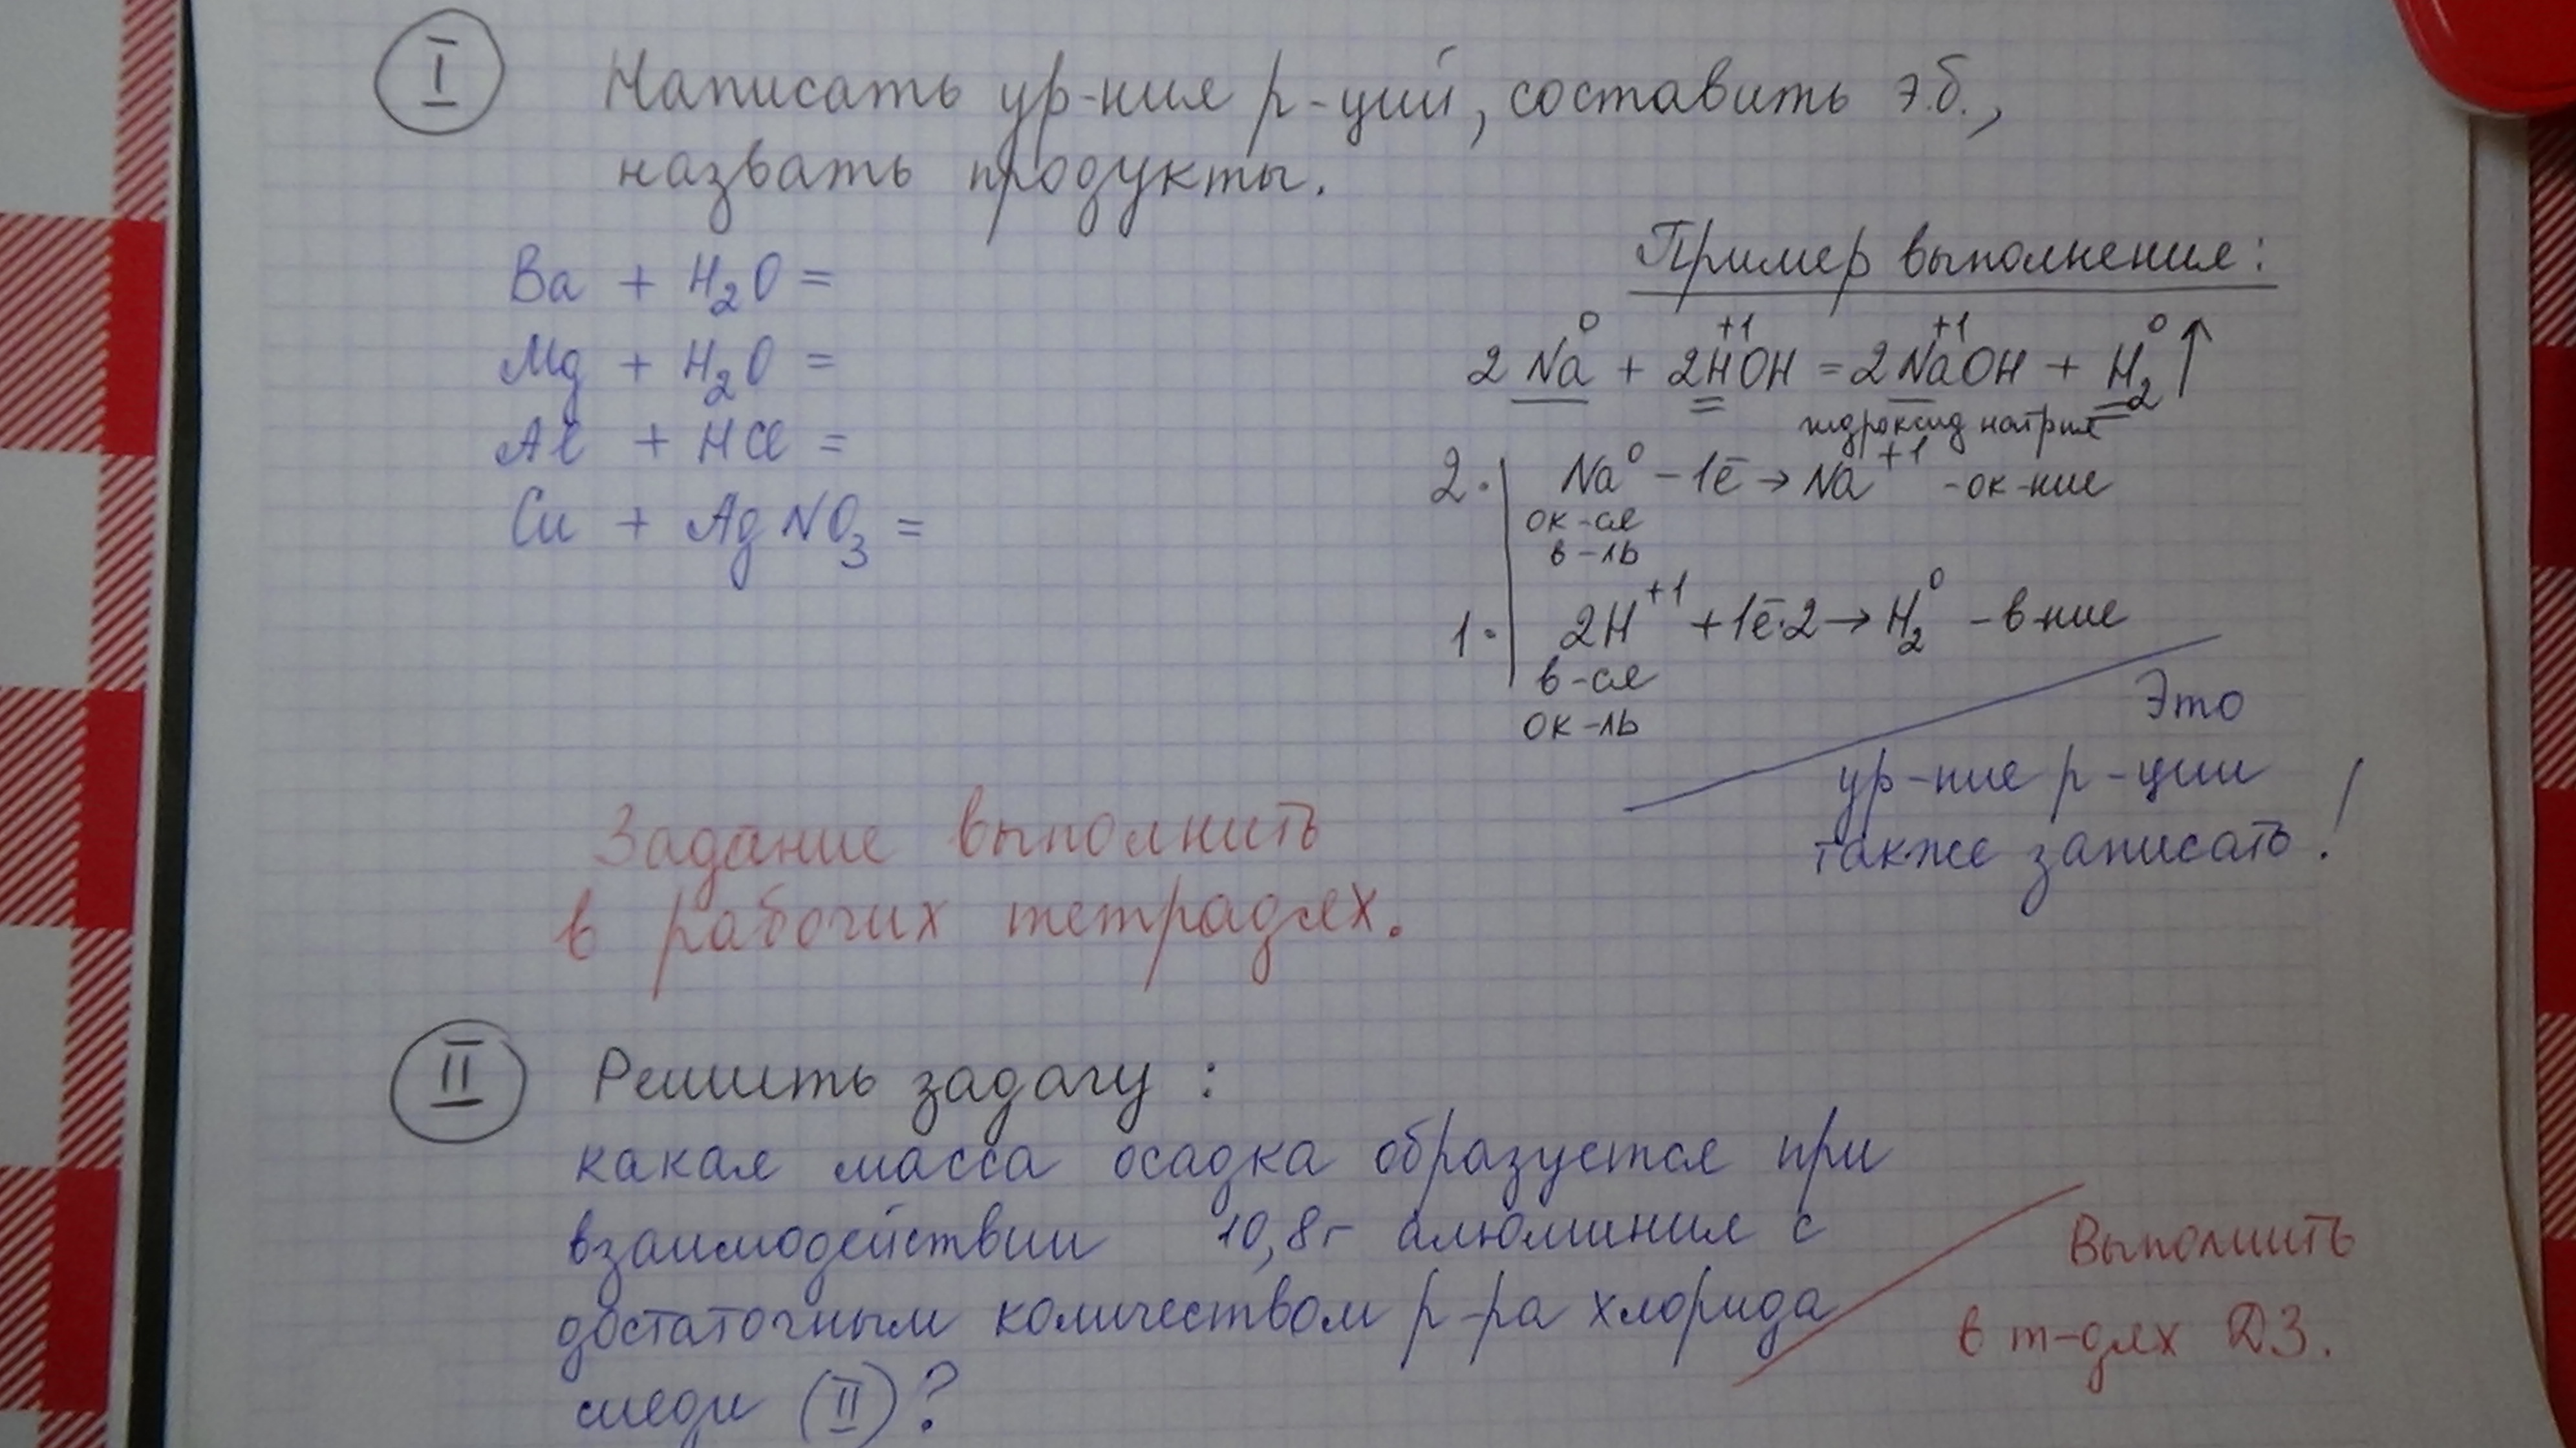 I
Написать ур-ния р-ций, составить э.б.,
назвать продукты.
Ba + H₂O =
Mg + H₂O =
Al + HCl =
Cu + AgNO₃ =
Пример выполнения:
2Na⁰ + 2H⁺¹OH = 2Na⁺¹OH + H₂⁰↑
гидроксид натрия
2· | Na⁰ – 1ē → Na⁺¹ – ок-ние
ок-ся
в-ль
1· | 2H⁺¹ + 1ē·2 → H₂⁰ – в-ние
в-ся
ок-ль
Это
ур-ние р-ции
также записать!
Задание выполнить
в рабочих тетрадях.
II
Решить задачу:
какая масса осадка образуется при
взаимодействии 10,8г алюминия с
достаточным количеством р-ра хлорида
меди (II)?
Выполнить
в т-дях ДЗ.